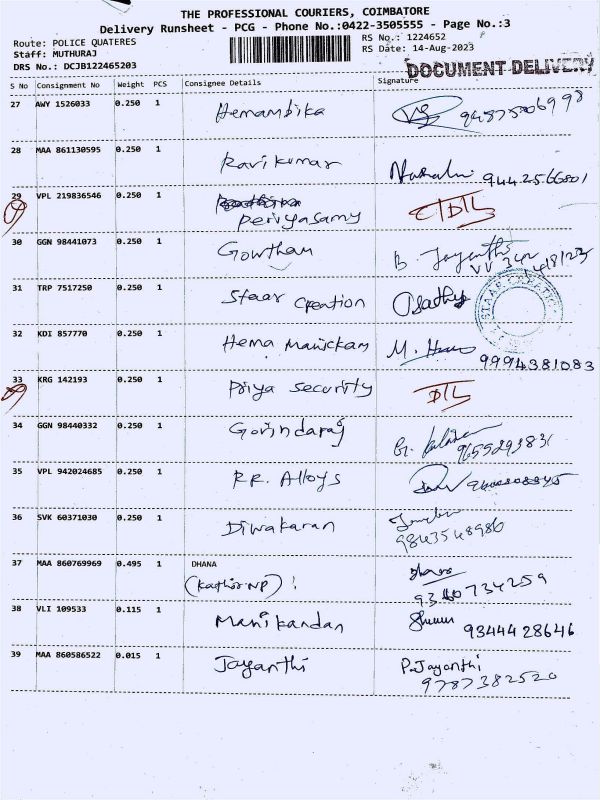 THE PROFESSIONAL COURIERS, COIMBATORE
Delivery Runsheet - PCG - Phone No.:0422-3505555 - Page No.:3
Route: POLICE QUATERES
RS No.: 1224652
Staff: MUTHURAJ
RS Date: 14-Aug-2023
DRS No.: DCJB122465203
DOCUMENT DELIVERY
S No Consignment No Weight PCS Consignee Details Signature
27 AWY 1526033 0.250 1 Hemambika
28 MAA 861130595 0.250 1 Ravi kumar 9442566801
29 VPL 219836546 0.250 1 periyasamy
30 GGN 98441073 0.250 1 Gowtham B. Jayanthi
31 TRP 7517250 0.250 1 Staar creation
32 KDI 857770 0.250 1 Hema Manickam 9994381083
33 KRG 142193 0.250 1 Priya security DTL
34 GGN 98440332 0.250 1 Govindaraj 9655293831
35 VPL 942024685 0.250 1 R.R. Alloys
36 SVK 60371030 0.250 1 Diwakaran 9843548986
37 MAA 860769969 0.495 1 DHANA
(Kathir NP)
38 VLI 109533 0.115 1 Manikandan 9344428646
39 MAA 860586522 0.015 1 Jayanthi P. Jayanthi
9787382520